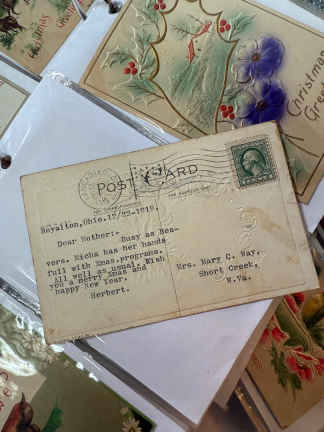 Christmas
Christmas
Greet
POST CARD
Royalton,Ohio.12/22-1919.
Dear Mother:-
Busy as Bea-
vers. Richa has her hands
full with Xmas.programs.
All well as usual. Wish
you a Merry Xmas and
happy New Year.
Herbert.
Mrs. Mary C. Way.
Short Creek,
W.Va.